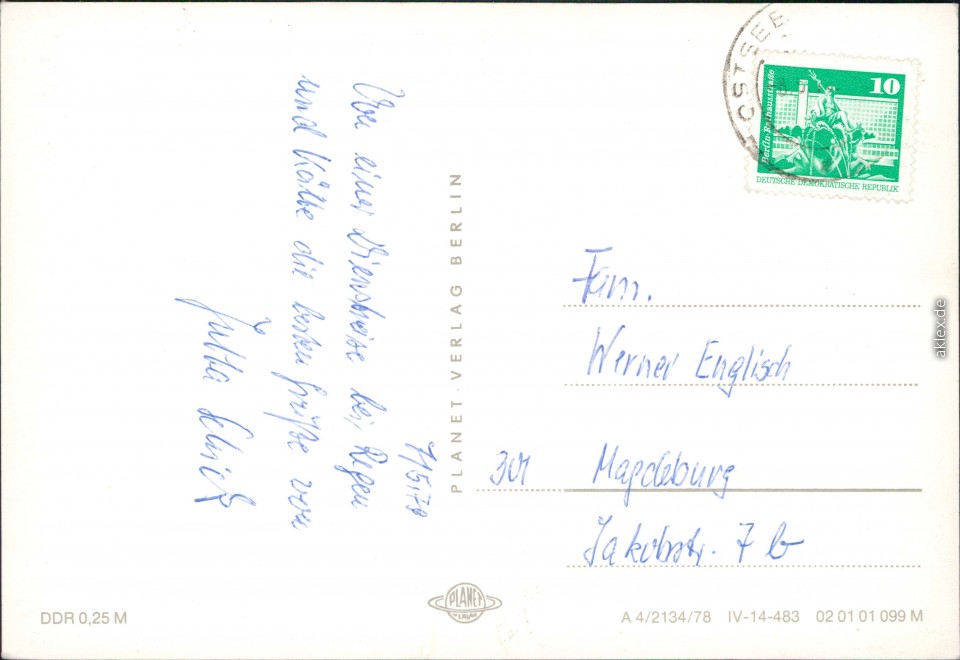 7/5.79
Von einer Dienstreise bei Regen
und Kälte die besten Grüße von
Jutta
PLANET-VERLAG BERLIN
OSTSEE
10
Berlin Rathausstraße
DEUTSCHE DEMOKRATISCHE REPUBLIK
Fam.
Werner Englisch
301 Magdeburg
Jakobstr. 7 b
aklex.de
DDR 0,25 M
PLANET
VERLAG
A 4/2134/78 IV-14-483 02 01 01 099 M